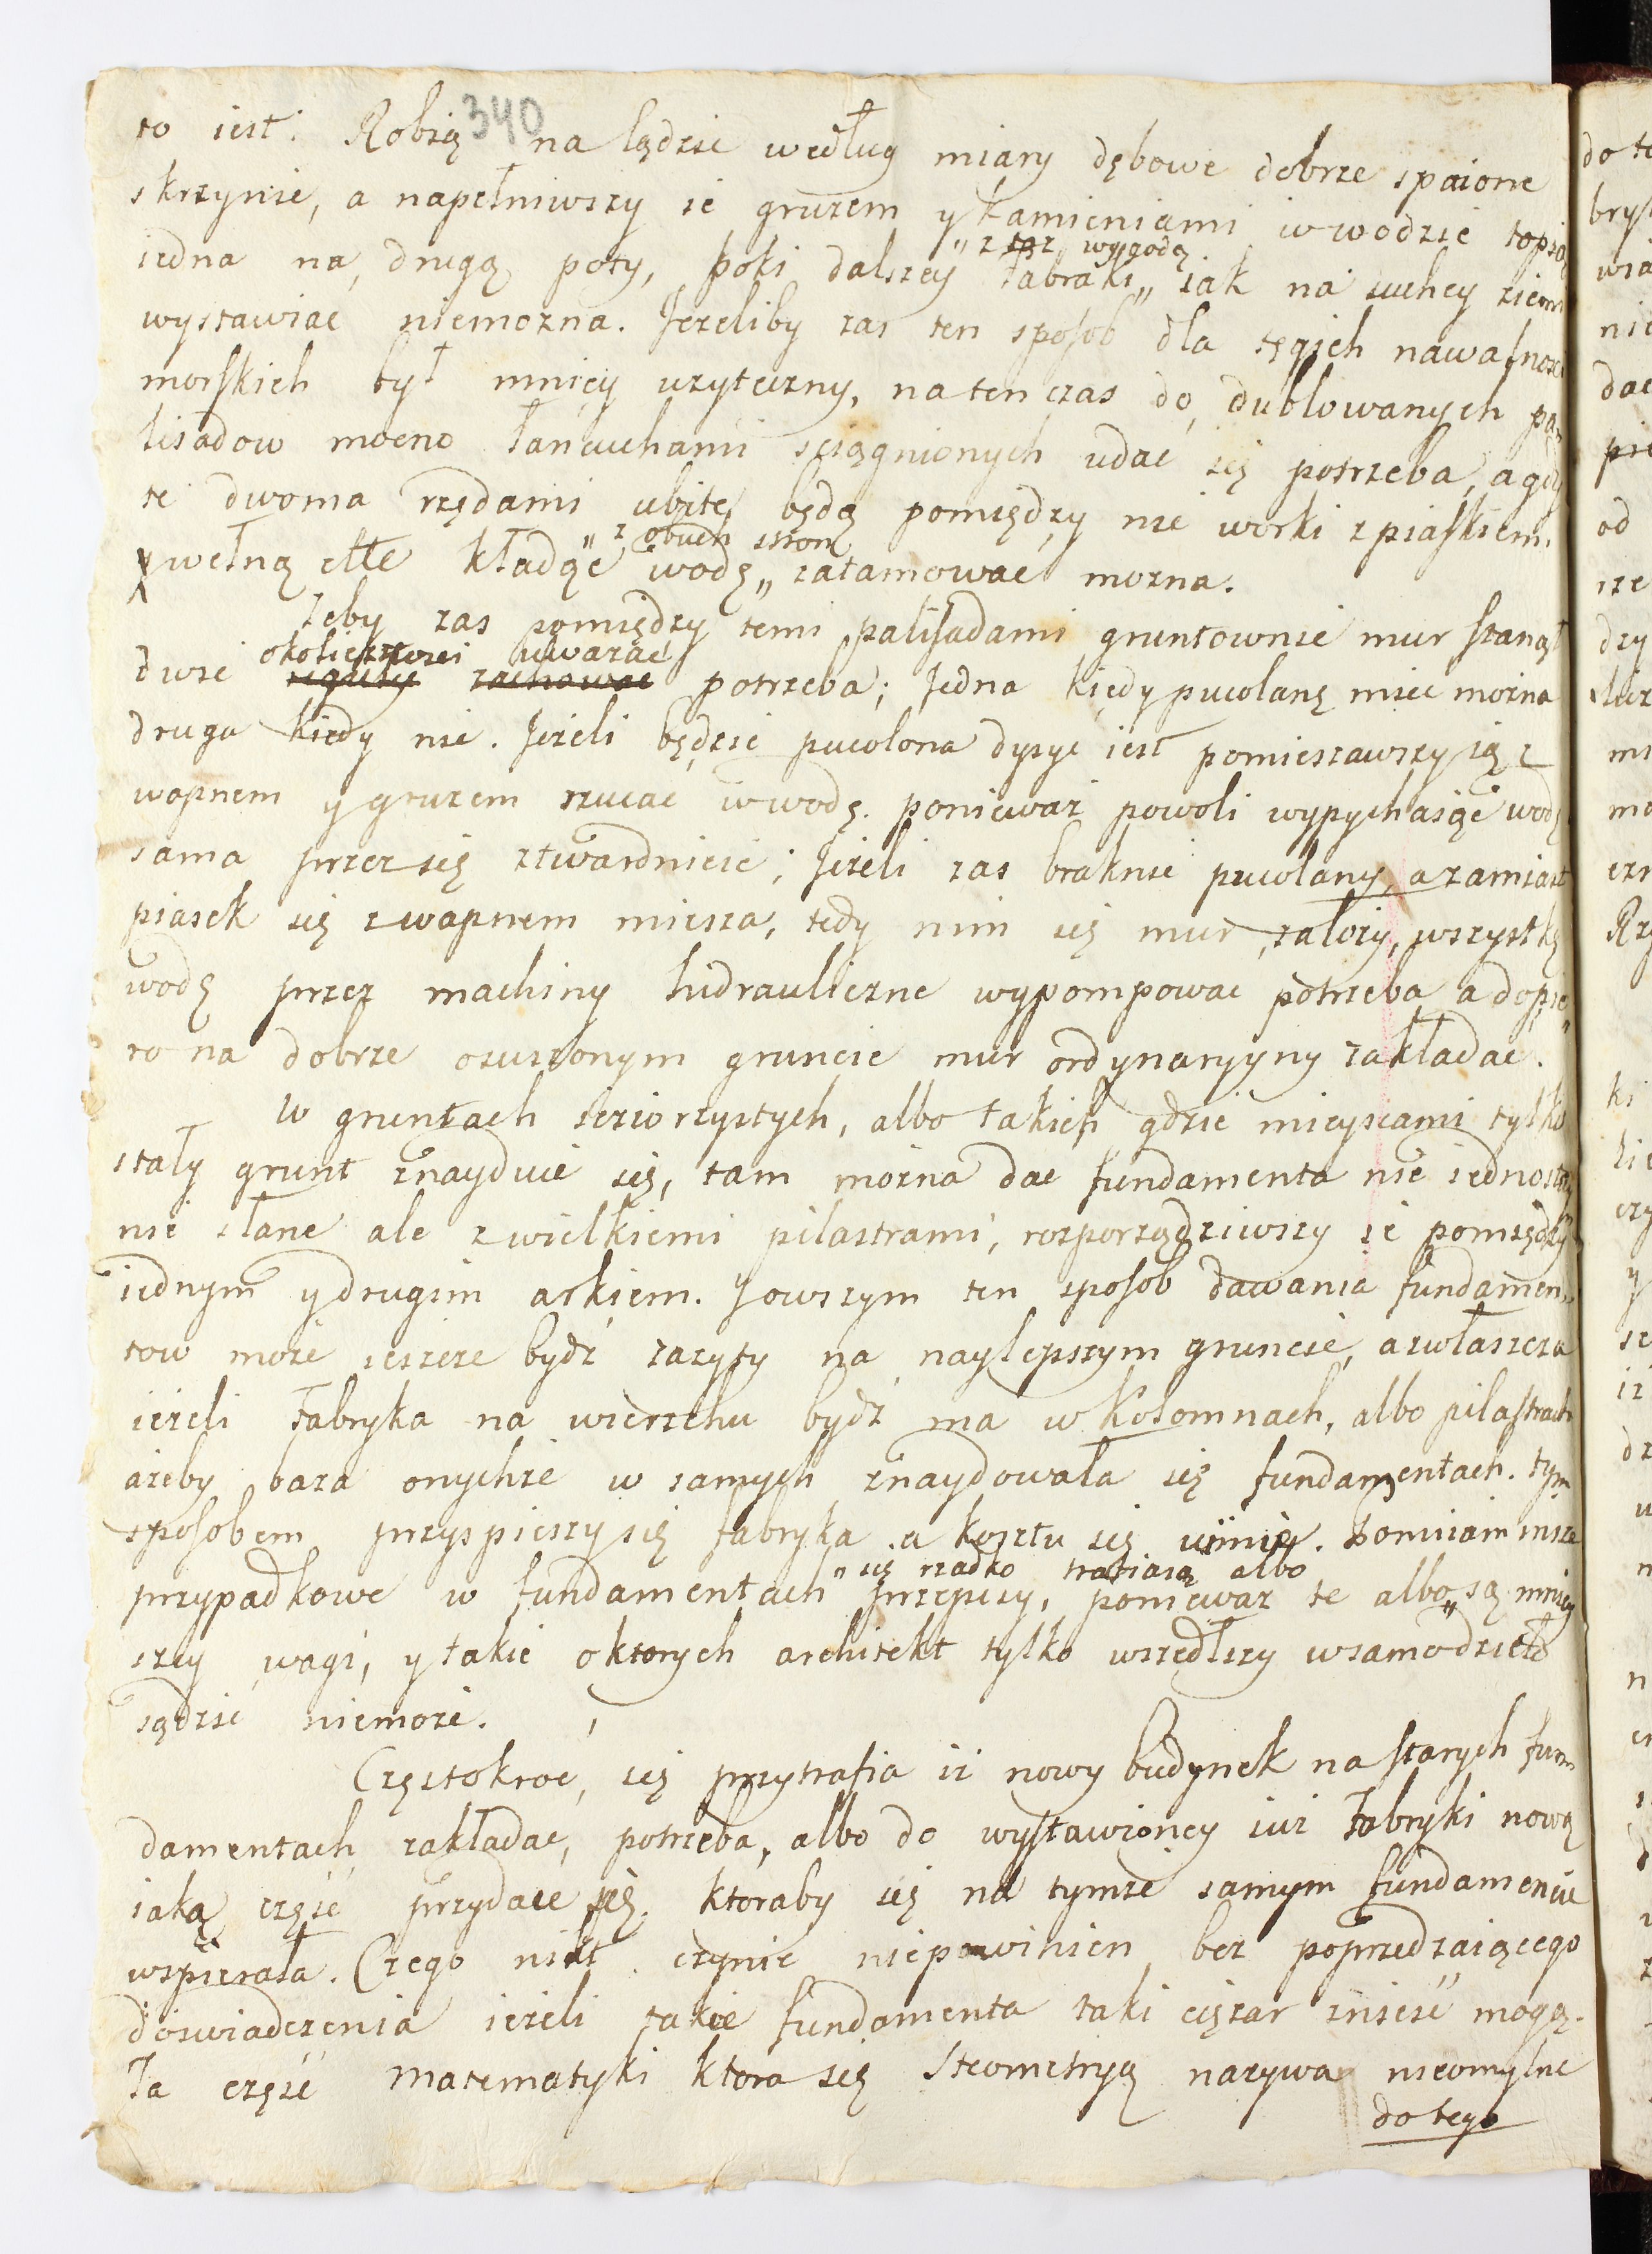 340
to iest: Robią na lądzie według miary dębowe dobrze spaione
skrzynie, a napełniwszy ie gruzem y kamieniami w wodzie topią
„z tąż wygodą
iedna na drugą poty, poki dalszey fabryki „ iak na suchey ziemi
wystawiac niemozna. Jezeliby zas ten sposob dla tęgich nawałnosci
morskich był mniey uzyteczny, na ten czas do dublowanych pa„
lisadow mocno łancuchami sciągnionych udac się potrzeba, a gdy
te dwoma rzędami ubite będą pomiędzy nie worki z piaskiem
„z obuch stron
y wełną ette kładąc wodę „ zatamowac mozna.
Zeby zas pomiędzy temi palisadami gruntownie mur stanął
okolicznosci uwazac
dwie reguły zachowac potrzeba; Jedna kiedy pucolanę miec mozna
druga kiedy nie. Jezeli będzie pucolona dysyc iest pomieszawszy ią z
wapnem y gruzem rzucac w wodę. poniewaz powoli wypychaiąc wodę
sama przez się ztwardnieie; Jezeli zas braknie pucolany, a zamiast
piasek się z wapnem miesza, tedy nim się mur załozy, wszystkę
wodę przez machiny hidrauliczne wypompowac potrzeba a dopie„
ro na dobrze osuszonym gruncie mur ordynaryyny zakładac.
W gruntach ieziorzystych, albo takich gdzie mieyscami tylko
stały grunt znayduie się, tam mozna dac fundamenta nie iednostay
nie słane ale z wielkiemi pilastrami, rozporządziwszy ie pomiędzy
iednym y drugim arkiem. Jowszym ten sposob dawania fundamen„
tow moze ieszcze bydz zazyty na naylepszym gruncie, a zwłaszcza
iezeli Fabryka na wierzchu bydz ma w Kolomnach, albo pilastrach
azeby baza onychze w samych znaydowała się fundamentach. tym
sposobem przyspieszy się fabryka a kosztu się umniey. Pomiiam insze
„się rzadko trafiaią albo
przypadkowe w fundamentach przepisy, poniewaz te albo „ są mniey
szey wagi, y takie o ktorych architekt tylko wszedłszy w samo dzieło
sądzic niemoze.
Częstokroc, się przytrafia iz nowy budynek na starych fun
damentach zakładac, potrzeba, albo do wystawioney iuz Fabryki nową
iaką częsc przydaie się. ktoraby się na tymze samym fundamencie
wspierała. Czego nikt czynic niepowinien bez poprzedzaiącego
doswiadczenia iezeli takie fundamenta taki cięzar zniesc mogą.
Ta częsc Matematyki ktora się Steometryą nazywa nieomylne
do tego